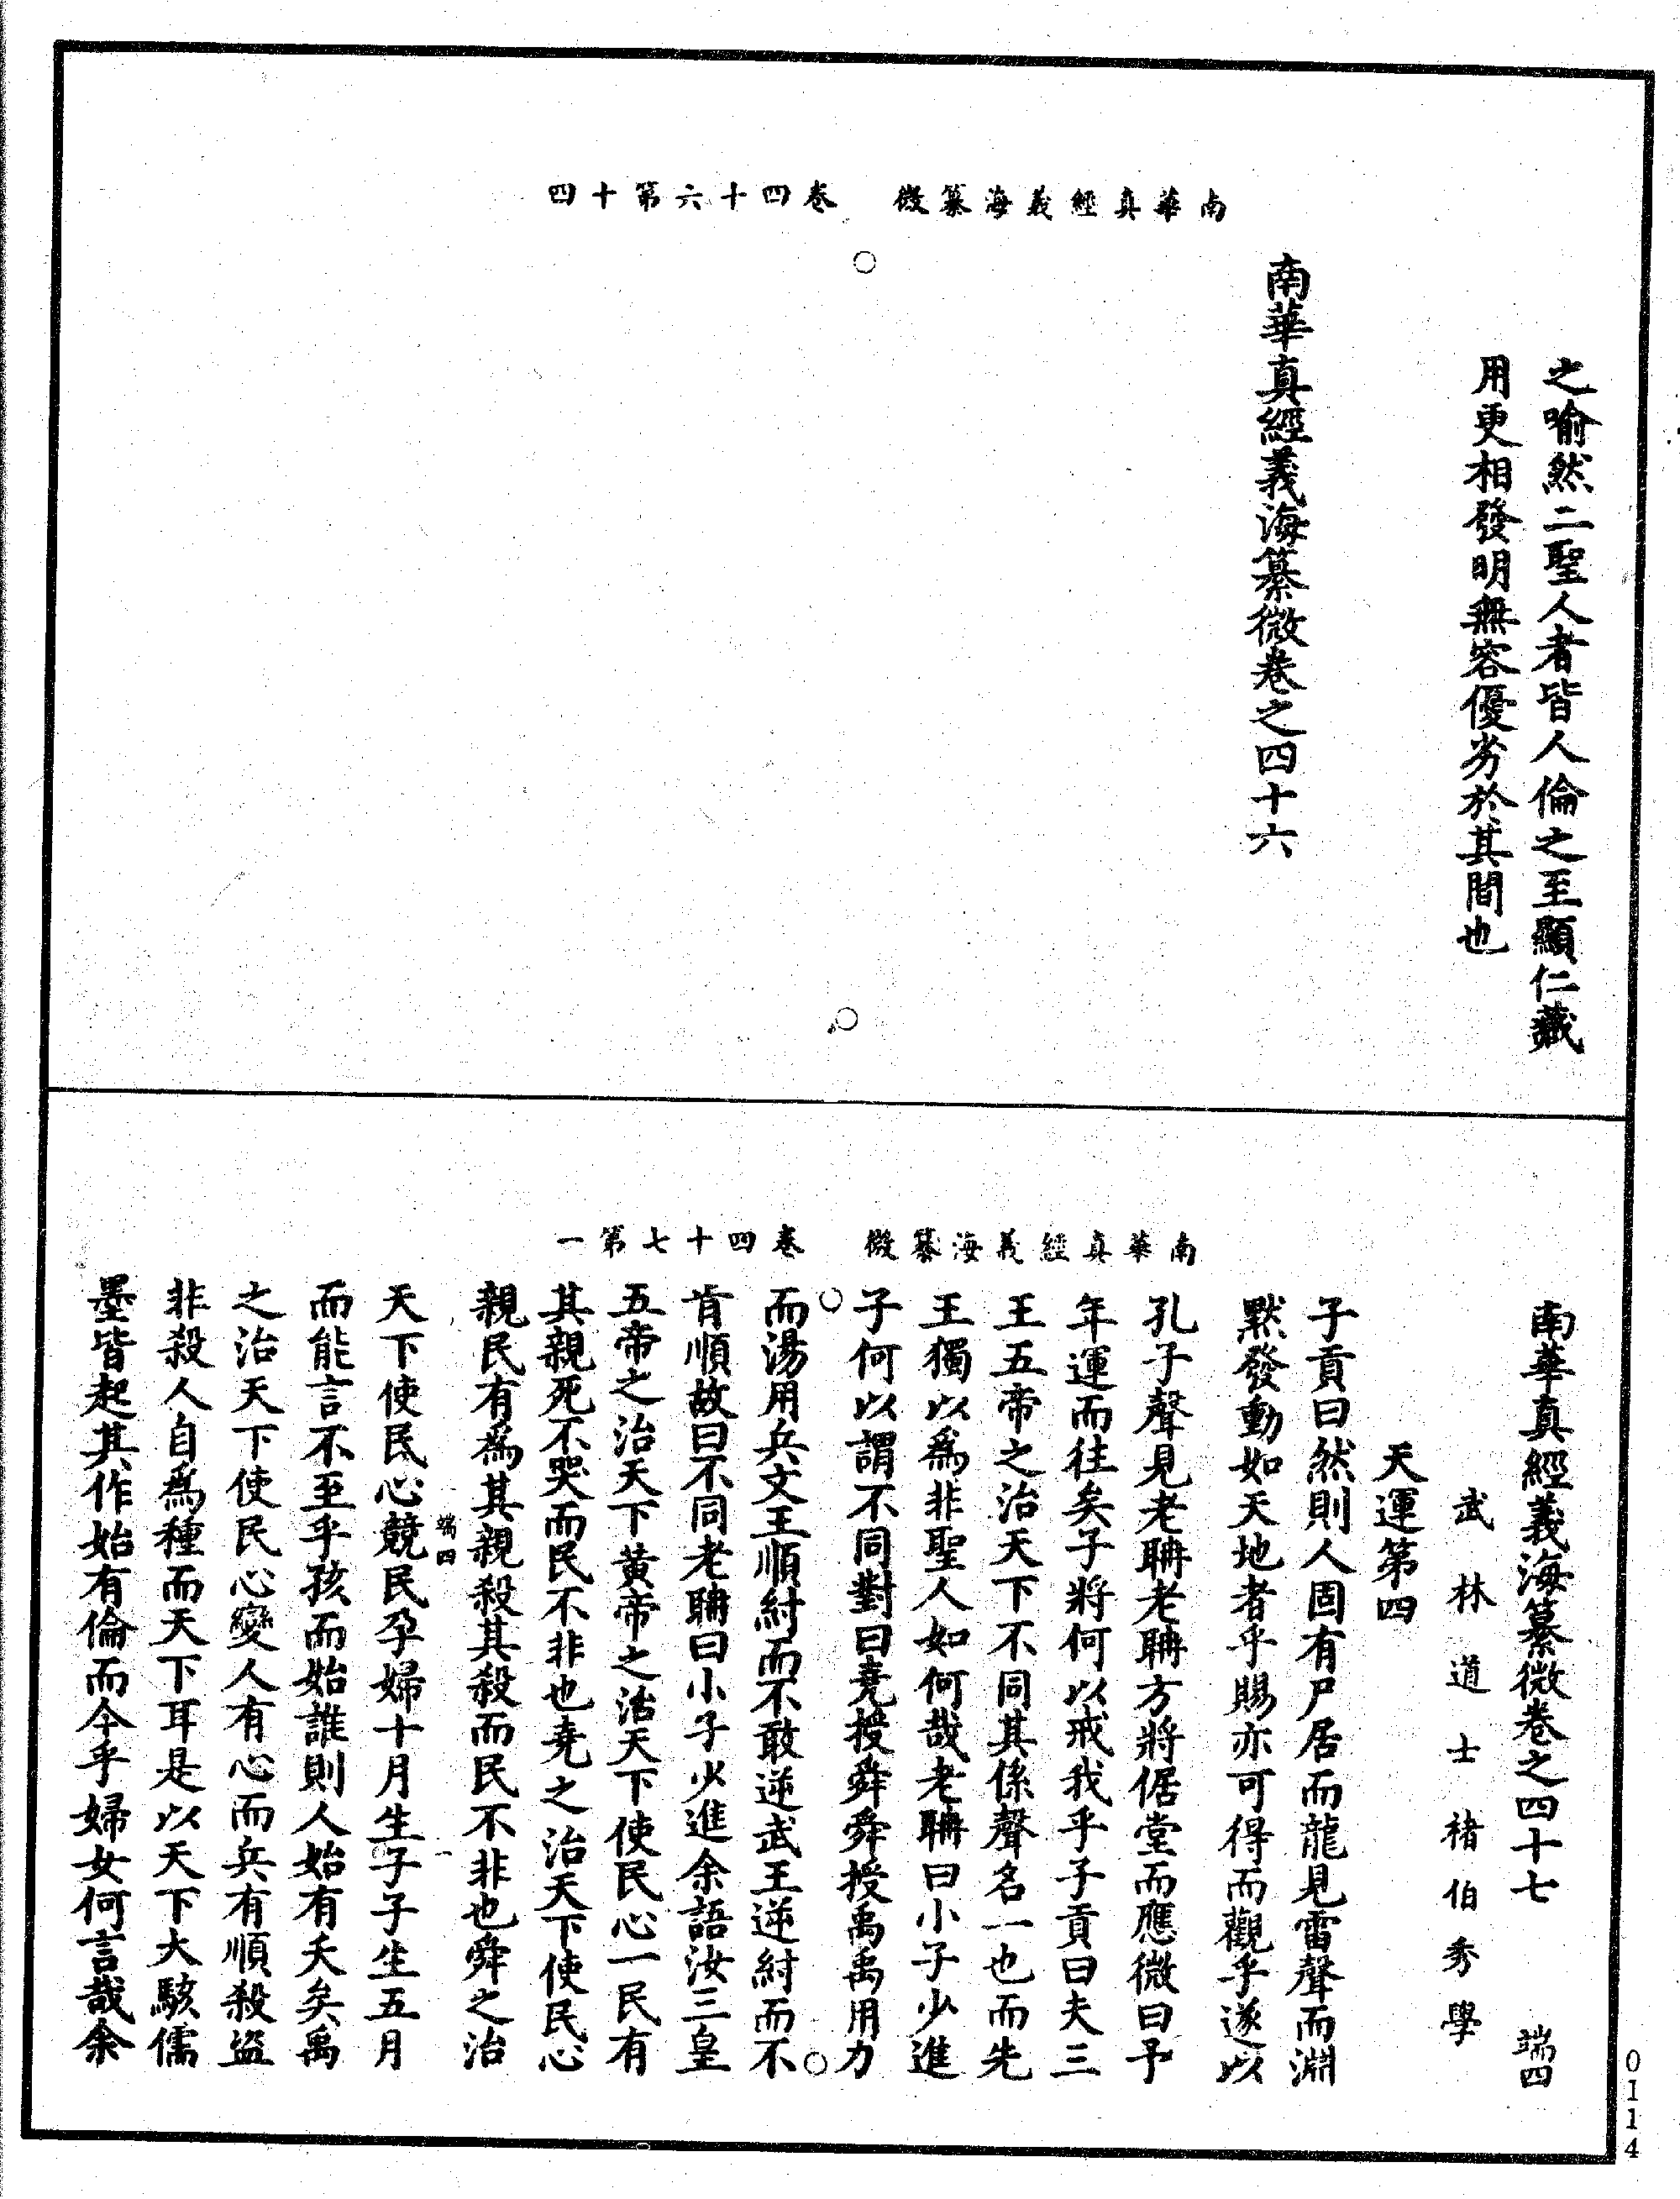 南華真經義海纂微　卷四十六第十四
之喻然二聖人者皆人倫之至顯仁藏
用更相發明無容優劣於其間也
南華真經義海纂微卷之四十六
南華真經義海纂微　卷四十七第一
南華真經義海纂微卷之四十七　端四
武林道士褚伯秀學
天運第四
子貢曰然則人固有尸居而龍見雷聲而淵
默發動如天地者乎賜亦可得而觀乎遂以
孔子聲見老聃老聃方將倨堂而應微曰予
年運而往矣子將何以戒我乎子貢曰夫三
王五帝之治天下不同其係聲名一也而先
王獨以為非聖人如何哉老聃曰小子少進
子何以謂不同對曰堯授舜舜授禹禹用力
而湯用兵文王順紂而不敢逆武王逆紂而不
肯順故曰不同老聃曰小子少進余語汝三皇
五帝之治天下黃帝之治天下使民心一民有
其親死不哭而民不非也堯之治天下使民心
親民有為其親殺其殺而民不非也舜之治
端四　一
天下使民心競民孕婦十月生子子生五月
而能言不至乎孩而始誰則人始有夭矣禹
之治天下使民心變人有心而兵有順殺盜
非殺人自為種而天下耳是以天下大駭儒
墨皆起其作始有倫而今乎婦女何言哉余
0114